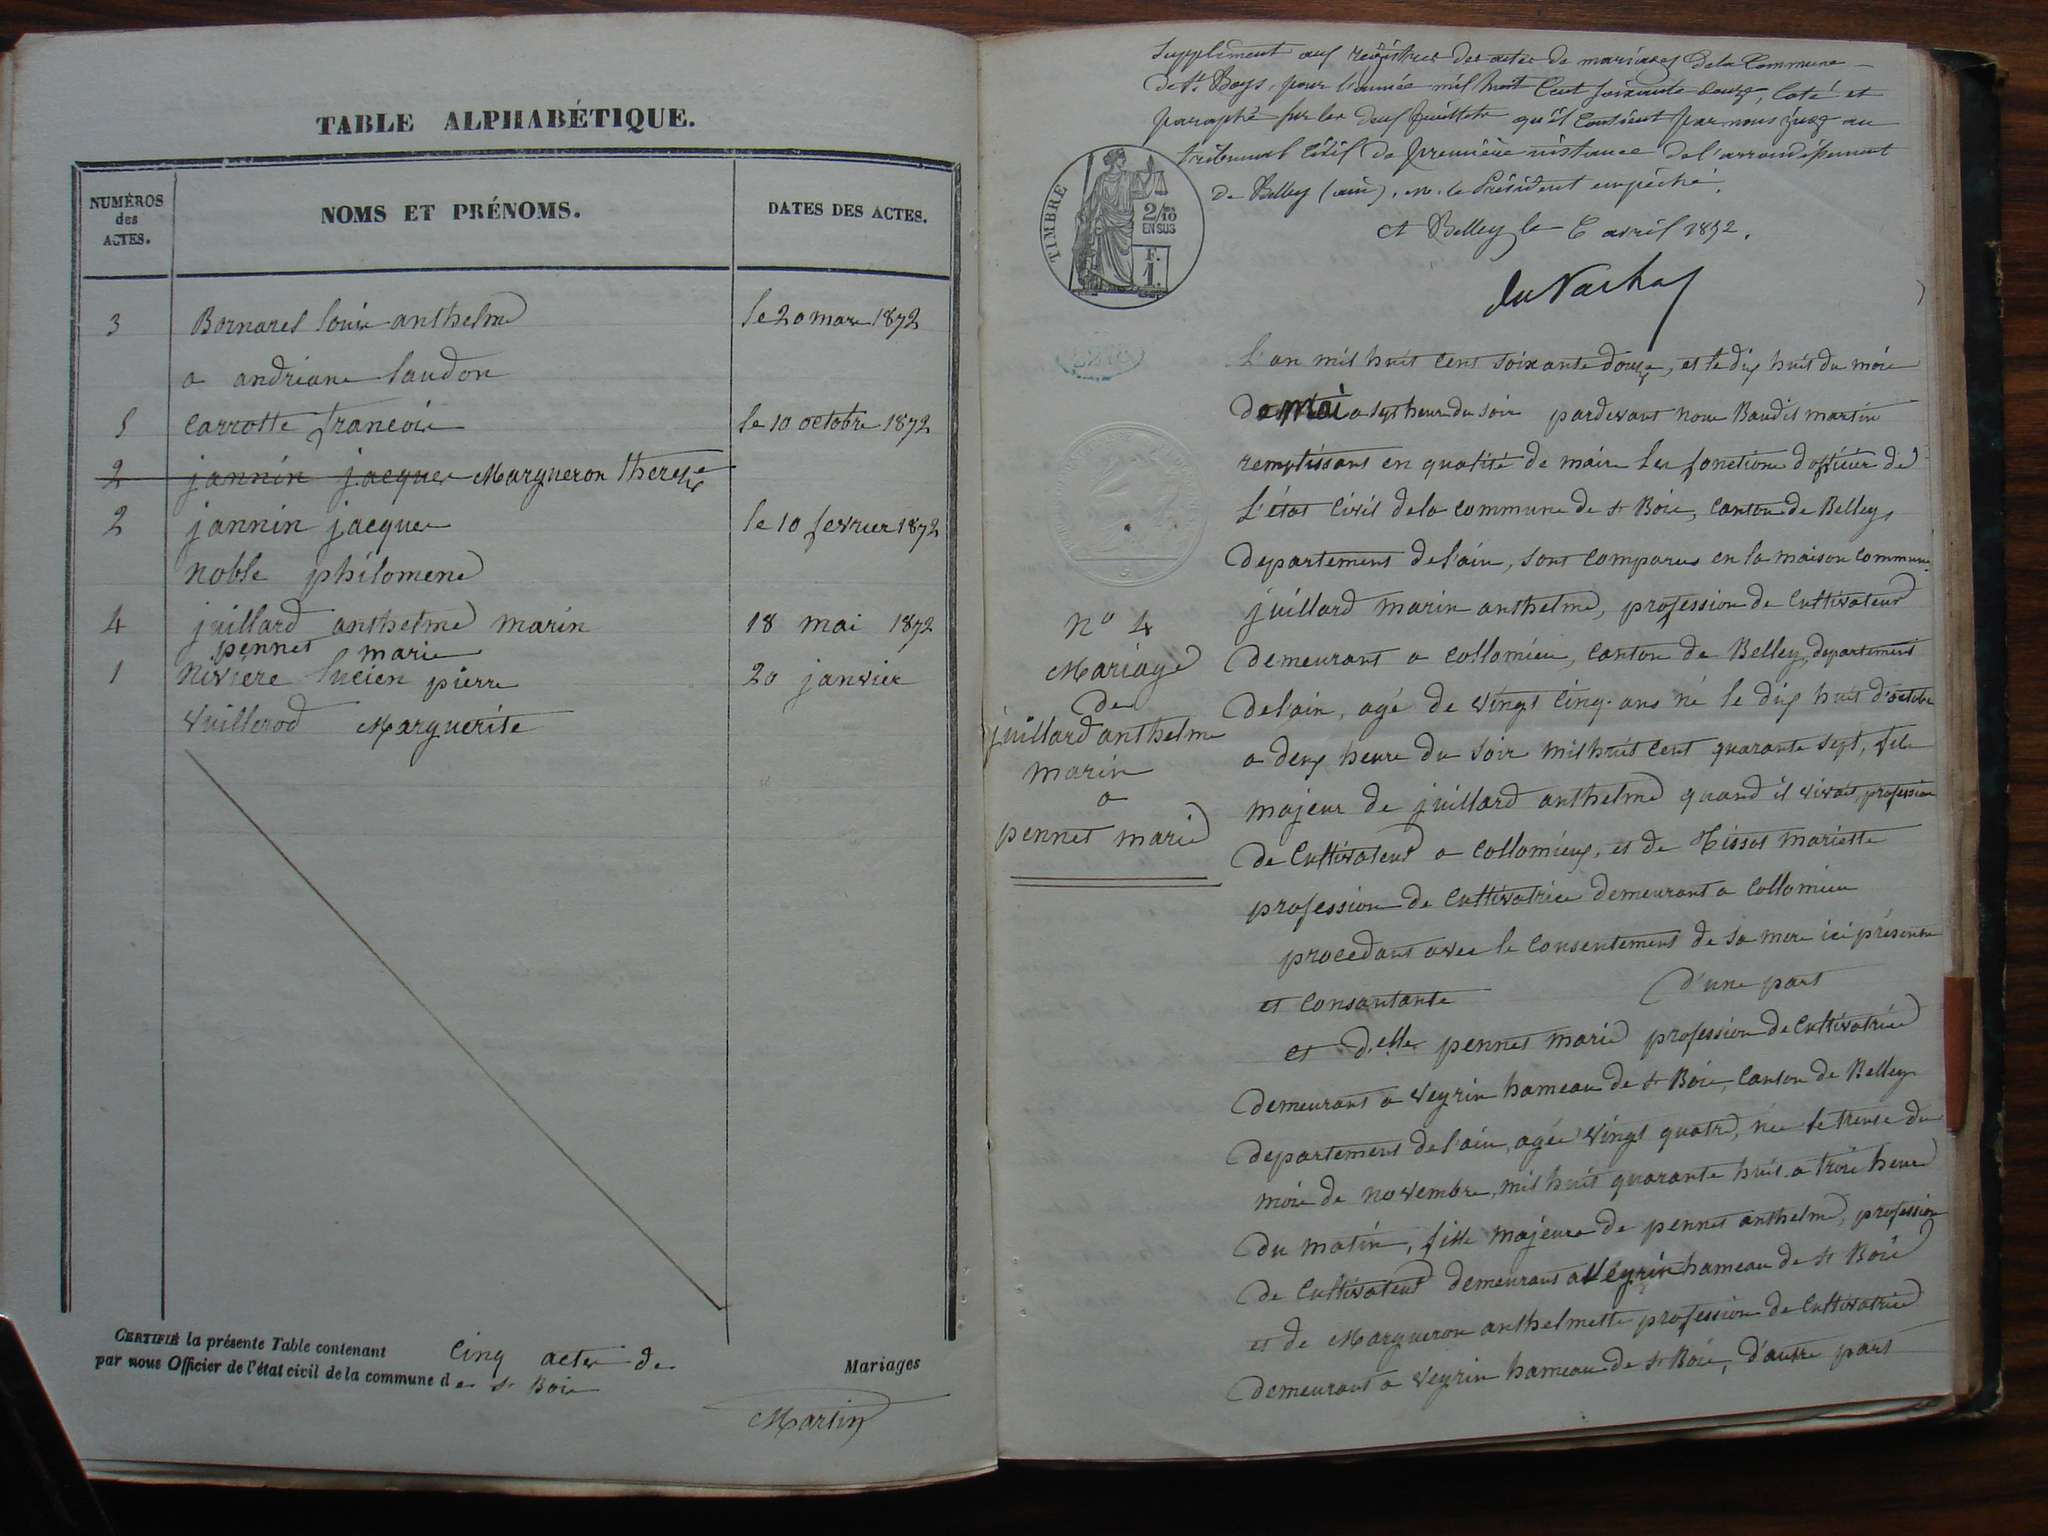 TABLE ALPHABÉTIQUE.
NUMÉROS
des
ACTES.
NOMS ET PRÉNOMS.
DATES DES ACTES.
3 Bornarel louis anthelme le 20 mars 1872
a andriane laudon
5 Carrotte francois le 10 octobre 1872
2 jannin jacques Margueron therese
2 jannin jacques le 10 fevrier 1872
noble philomene
4 juillard anthelme marin 18 mai 1872
pennet marie
1 Nivière lucien pierre 20 janvier
Vuillerod Marguerite
CERTIFIÉ la présente Table contenant Cinq actes de Mariages
par nous Officier de l'état civil de la commune de St Bois
Martin
Supplément aux registres des actes de mariages de la Commune
de St Boys, pour l'année mil huit cent soixante douze, coté et
paraphé sur les deux feuillets qu'il contient par nous juge au
tribunal civil de première instance de l'arrondissement
de Belley (ain), M. le Président empêché.
A Belley le 6 avril 1872.
TIMBRE
2/10
EN SUS
F.
1.
L'an mil huit cent soixante douze, et le dix huit du mois
de Mai a sept heure du soir pardevant nous Baudit martin
remplissant en qualité de maire les fonctions d'officier de
L'état Civil de la commune de St Bois, Canton de Belley,
departement de l'ain, sont comparus en la maison commune
juillard marin anthelme, profession de Cultivateur
demeurant a collomieu, canton de Belley, departement
de l'ain, agé de vingt cinq ans né le dix huit d'octobre
a deux heure du soir mil huit cent quarante sept, fils
majeur de juillard anthelme quand il vivait, profession
de Cultivateur a collomieux, et de Tissot mariette
profession de Cultivatrice demeurant a Collomieu
procedant avec le consentement de sa mere ici présente
et consantante d'une part
et d.elle pennet marie profession de cultivatrice
demeurant a veyrin hameau de St Bois, Canton de Belley
departement de l'ain, agée vingt quatre, née le trense du
mois de novembre, mil huit quarante huit a trois heure
du matin, fille majeure de pennet anthelme, profession
de Cultivateur demeurant a Veyrin hameau de St Bois
et de Margueron anthelmette profession de Cultivatrice
demeurant a veyrin hameau de St Bois, d'autre part
No 4
Mariage
de
juillard anthelme
marin
a
pennet marie